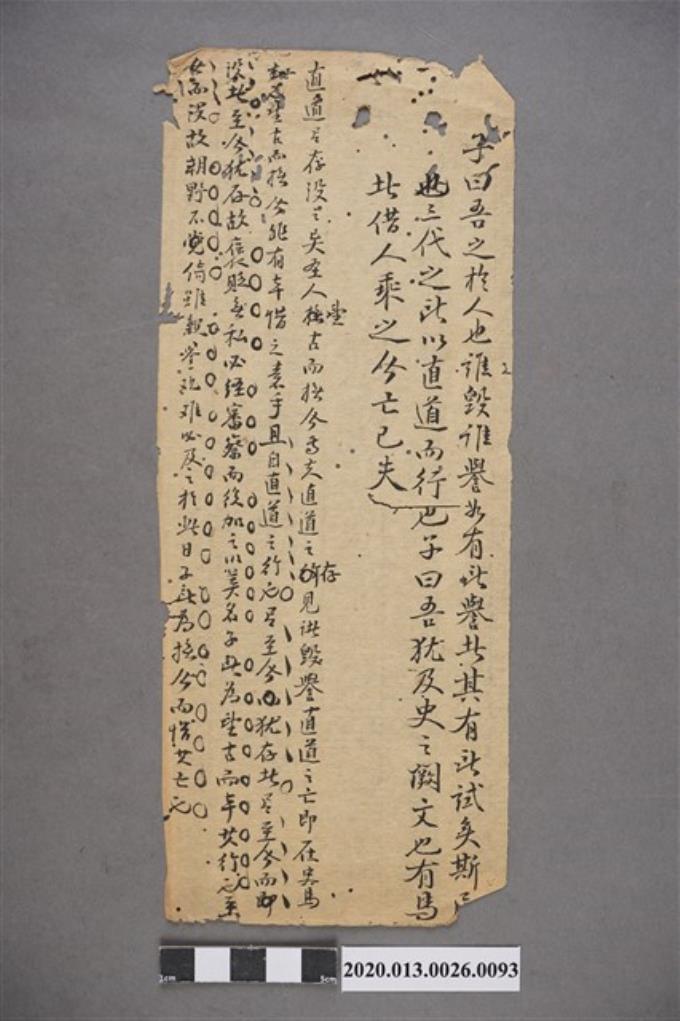 子曰吾之於人也誰毀誰譽如有所譽者其有所試矣斯民
也三代之所以直道而行也子曰吾猶及史之闕文也有馬
者借人乘之今亡已夫
直道之存沒之矣聖人望古而撫今焉夫直道之存見諸毀譽直道之亡即在史馬
望古而撫今能有幸惜之素乎且自直道之行也有至今猶存者有至今而即
沒者至今猶存故褒貶無私必經審察而後加之以美名子所為望古而幸其行也至
於沒故朝野不覺倚雖親譽說难必及之於此日子所為撫今而惜其亡也
2020.013.0026.0093
1cm
5cm